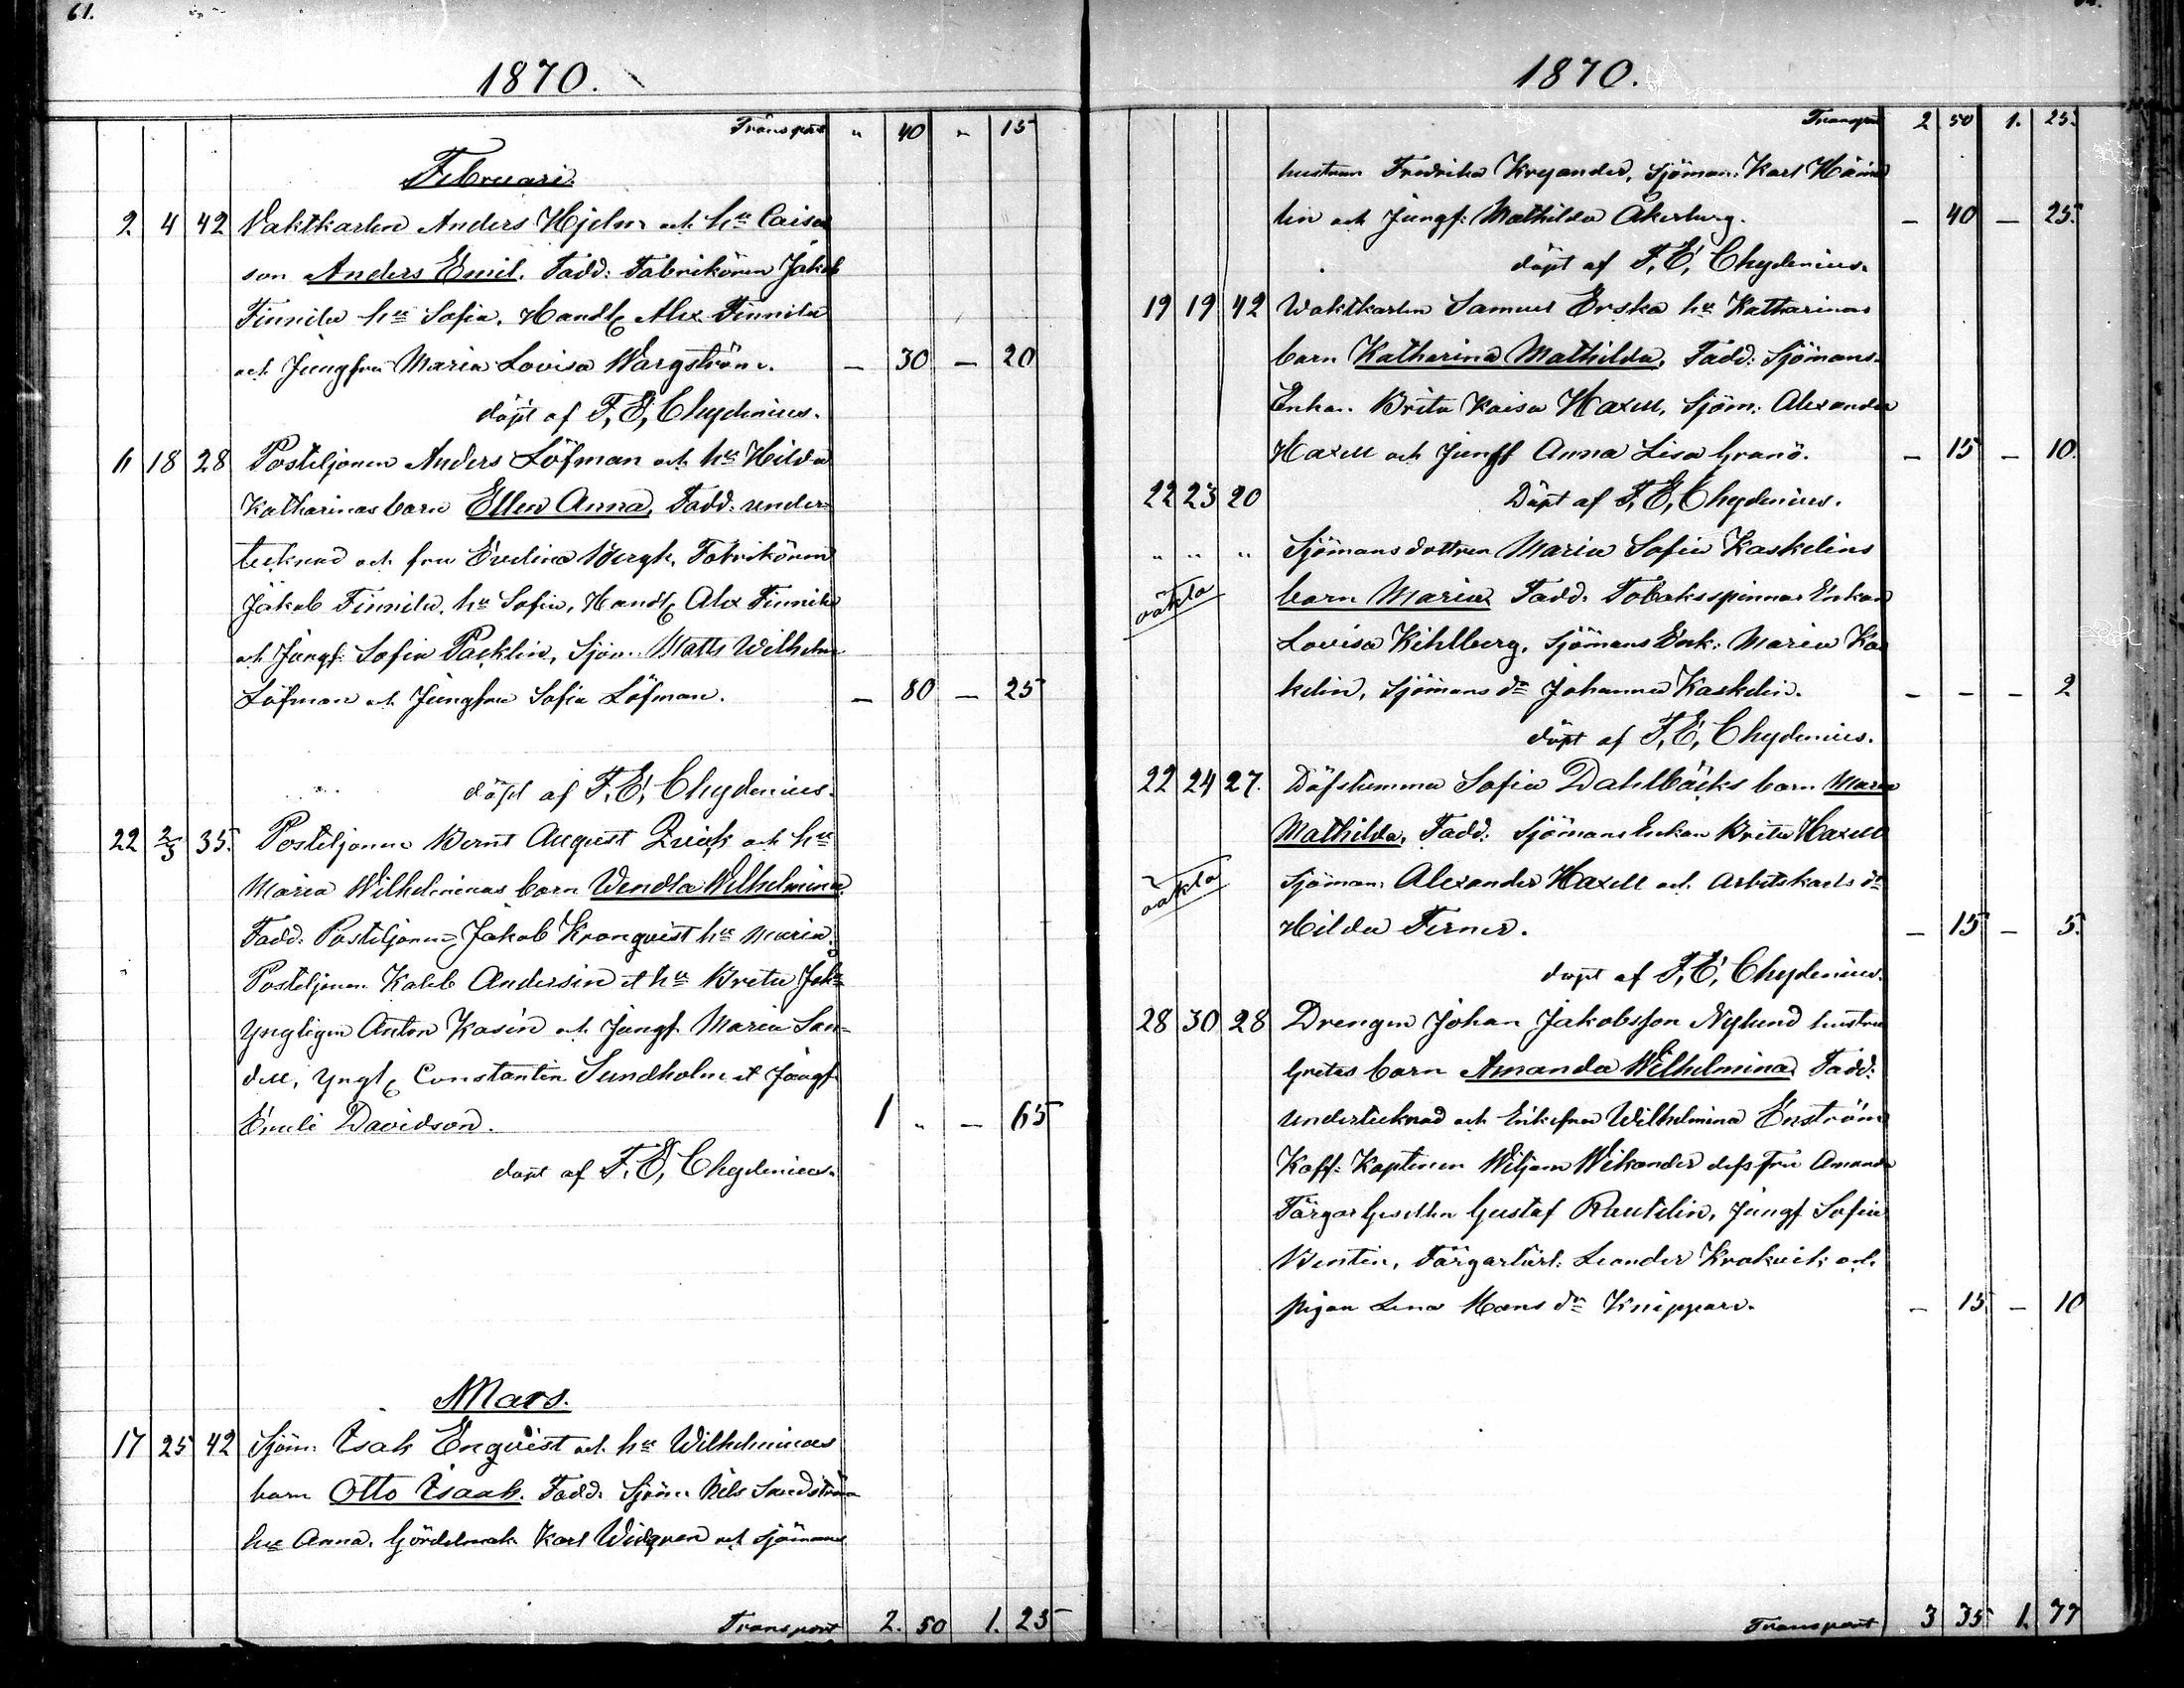 61.
1870.
Transport " 40 " 15
Februari.
2 4 42 Vaktkarlen Anders Hjelm och hu Caisas
son Anders Emil. Fadd: Fabrikören Jakob
Finnilä hu Sofia, Handl Alex Finnilä
och Jungfru Maria Lovisa Wargström. — 30 — 20
döpt af F, E, Chydenius.
11 18 28 Postiljonen Anders Löfman och hu Hilda
Katharinas barn Ellen Anna, Fadd: under-
tecknad och fru Evelina Bergh, Fabrikören
Jakob Finnilä, hu Sofia, Handl Alex Finnilä
och Jungf: Sofia Packlin, Sjöm: Matts Wilhelm
Löfman och Jungfru Sofia Löfman. — 80 — 25
döpt af F, E, Chydenius.
22 2/3 35. Postiljonen Bernt August Quick och hu
Maria Wilhelminas barn Wendla Wilhelmina.
Fadd: Postiljonen Jakob Kronqvist hu Maria.
Postiljonen Kaleb Andersin et hu Brita
Ynglingen Anton Kasén och Jungf. Maria San-
dell, Yngl Constantin Sundholm et Jungf
Emili Davidson. 1 " — 65
döpt af F, E, Chydenius.
Mars.
17 25 42 Sjöm: Isak Enqvist och hu Wilhelminas
barn Otto Isaak. Fadd: Sjöm: Nils Sandström
hu Anna, Karl Widgren och sjömans
Transport 2. 50 1. 25
1870.
Transport 2 50 1. 25.
hustrun Fredrika Kryander, Sjöman: Karl
lin och Jungf: Mathilda Åkerberg. — 40 — 25.
döpt af F, E, Chydenius.
19 19 42 Waktkarlen Samuel Erska hu Katharinas
barn Katharina Mathilda, Fadd: Sjömans-
Enkan Brita Kaisa Haxell, Sjöm: Alexander
Haxell och Jungf Anna Lisa Granö. — 15 — 10.
22 23 20 Döpt af F, E, Chydenius.
" " " Sjömansdottren Maria Sofia Kaskelins
oäkta barn Maria Fadd: Tobaksspinnar Enkan
Lovisa Kihlberg, Sjömans Enk: Maria Kas
kelin, Sjömans dr Johanna Kaskelin. — — — 2
döpt af F, E, Chydenius.
22 24 27. Döfstumma Sofia Dahlbäcks barn Maria
Mathilda, Fadd: Sjömans Enkan Brita Haxell
oäkta Sjöman: Alexander Haxell och Arbetskarls dr
Hilda Ferner. — 15 — 5.
döpt af F, E, Chydenius.
28 30 28 Drengen Johan Jakobsson Nylund hustru
Gretas barn Amanda Wilhelmina, Fadd:
undertecknad och Enkefru Wilhelmina Enström
Koff: Kaptenen Wiljam Wikander dess fru Amanda
Färgar Gesellen Gustaf Rautelin, Jungf Sofia
Wentin, Färgarlärl: Leander Krakvik och
pigan Lena Mans dr Knippare. — 15 — 10
Transport 3 35 1. 77